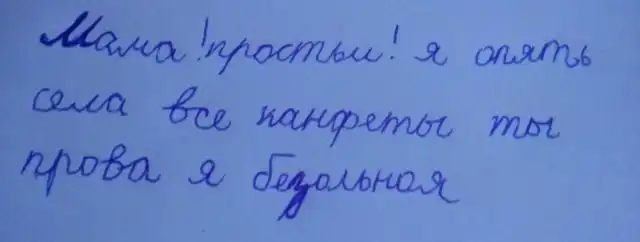 Мама! простыи! я опять
села все канфеты ты
прова я безольная